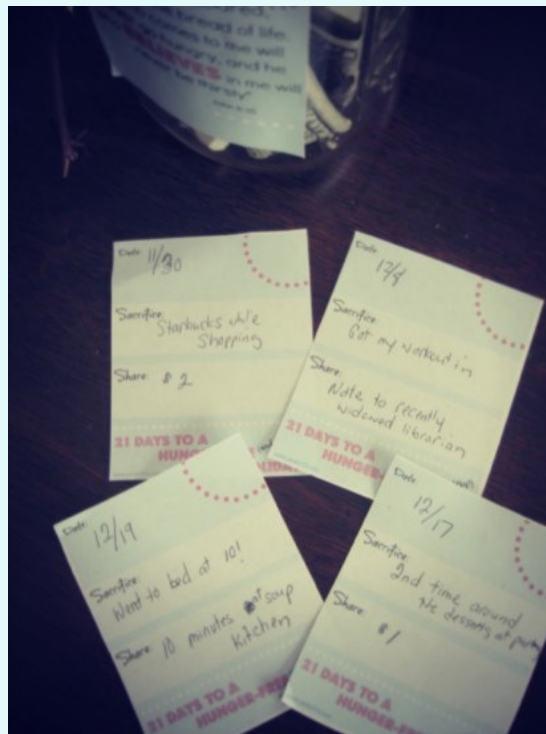 bread of life.
comes to me will
go hungry, and he
BELIEVES in me will
never be thirsty"
Date: 11/30
Sacrifice:
Starbucks while
Shopping
Share: $2
21 DAYS TO A
Date: 12/4
Sacrifice:
Got my workout in
Share:
Note to recently
widowed librarian
21 DAYS TO A
HUNGER-
Date: 12/19
Sacrifice:
Went to bed at 10!
Share: 10 minutes at soup
Kitchen
21 DAYS TO A
HUNGER-FREE
Date: 12/17
Sacrifice:
2nd time around
the desserts at party
Share: $1
21 DAYS TO A
HUNGER-FRE